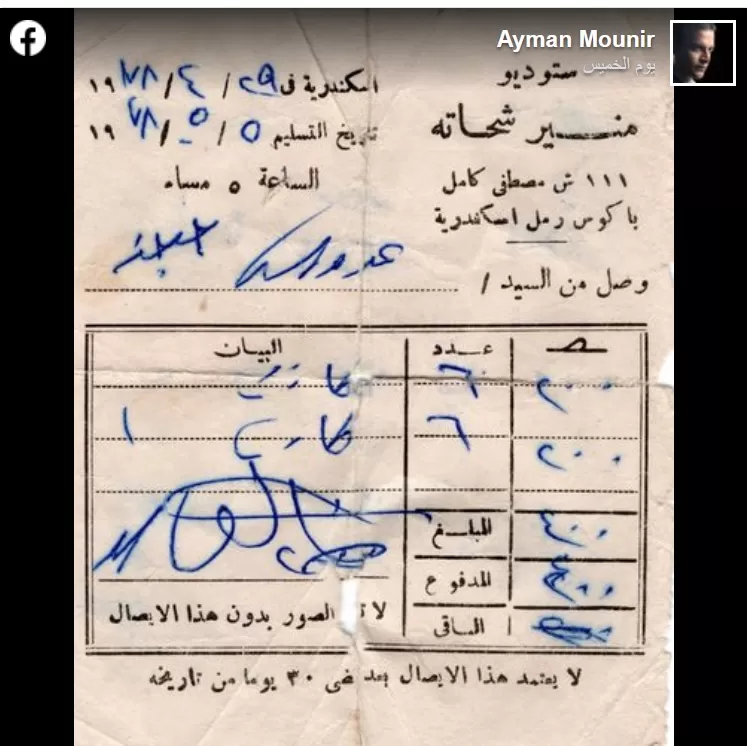 Ayman Mounir
يوم الخميس
ستوديو
منير شحاته
١١١ ش مصطفى كامل
باكوس رمل اسكندرية
اسكندرية فى ٢٩ / ٤ / ١٩٧٨
تاريخ التسليم ٥ / ٥ / ١٩٧٨
الساعة ٥ مساء
وصل من السيد /
البيان عدد
٢٠٠ ٦ كارت
٢٠٠ ٦ كارت ١
المبلغ ٤٠٠
المدفوع
الباقى
لا الصور بدون هذا الايصال
لا يعتمد هذا الايصال بعد مضى ٣٠ يوما من تاريخه